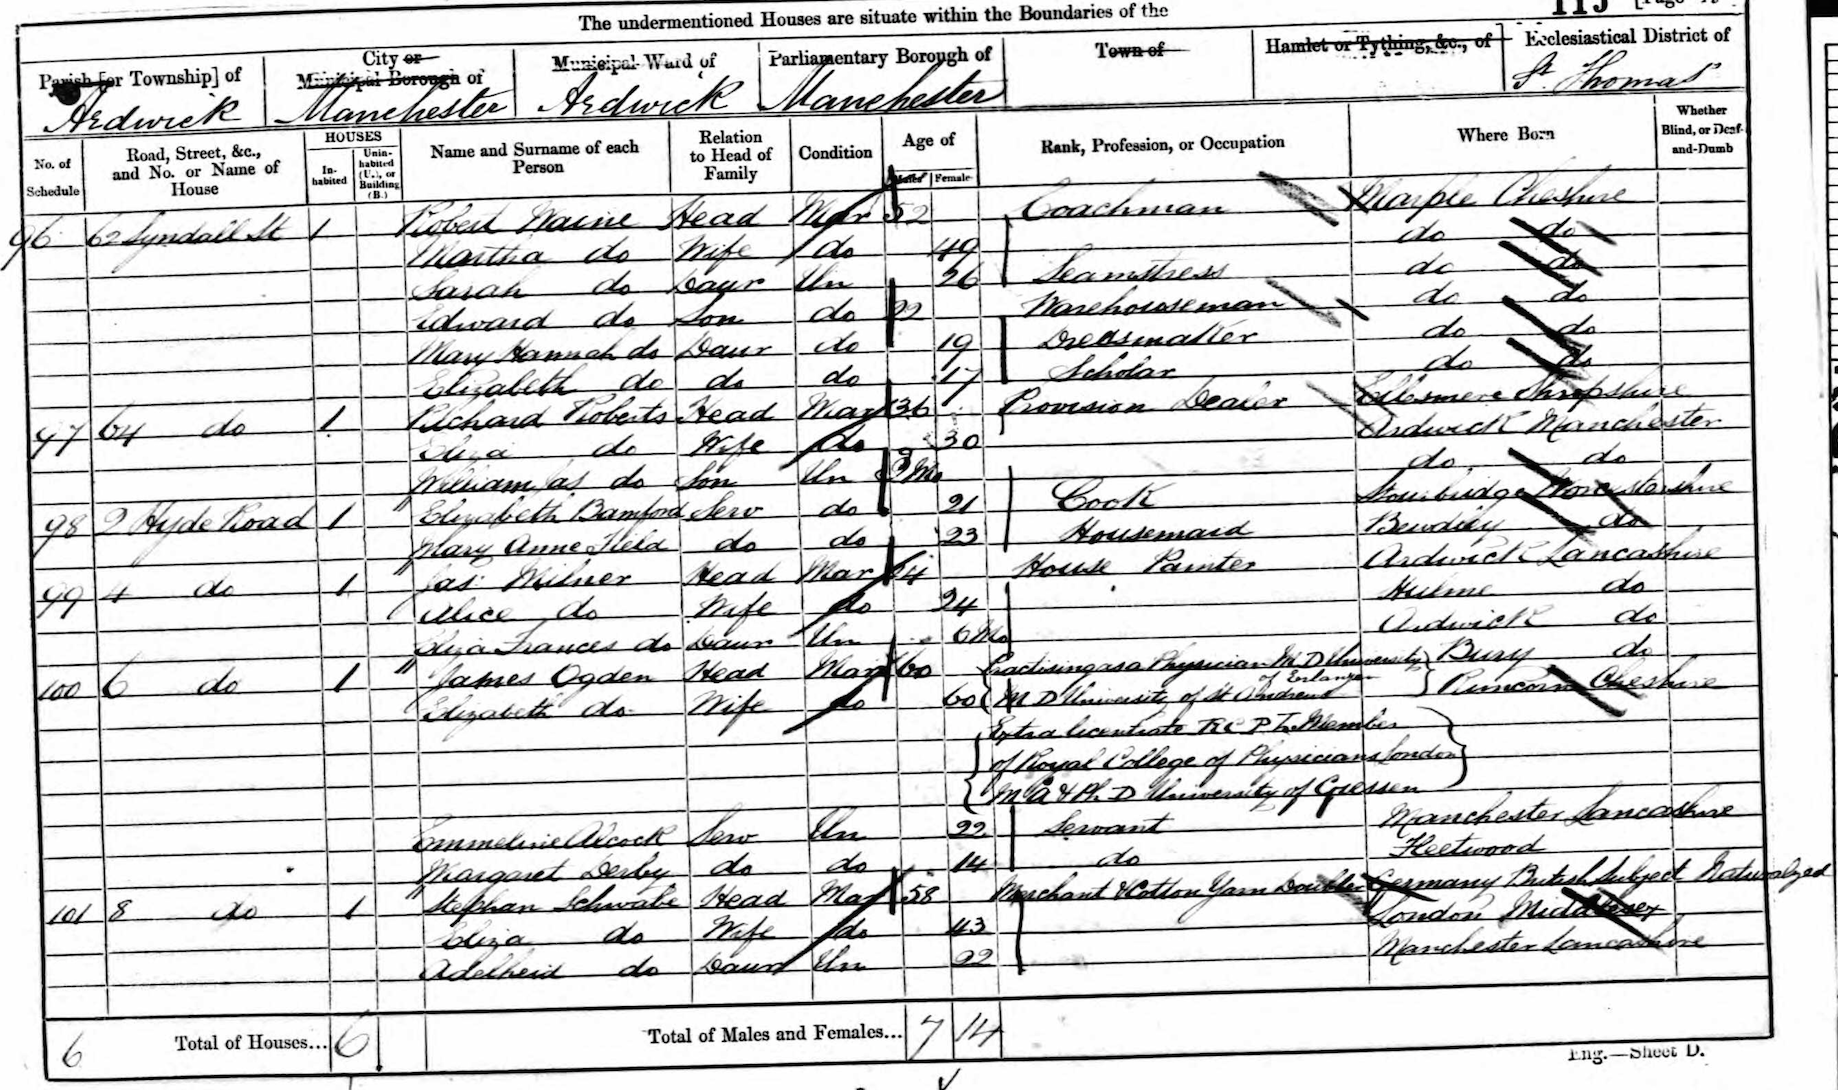 The undermentioned Houses are situate within the Boundaries of the
115 [Page
Parish [or Township] of
Ardwick
City or Municipal Borough of
Manchester
Municipal Ward of
Ardwick
Parliamentary Borough of
Manchester
Town of
Hamlet or Tything, &c., of
Ecclesiastical District of
St. Thomas'
No. of Schedule
Road, Street, &c., and No. or Name of House
HOUSES
In-habited
Unin-habited (U.), or Building (B.)
Name and Surname of each Person
Relation to Head of Family
Condition
Age of
Males Females
Rank, Profession, or Occupation
Where Born
Whether Blind, or Deaf-and-Dumb
96 62 Tyndall St 1 Robert Waine Head Mar 52 Coachman Marple Cheshire
Martha do Wife do 49 do do
Sarah do Daur Un 26 Seamstress do do
Edward do Son do 22 Warehouseman do do
Mary Hannah do Daur do 19 Dressmaker do do
Elizabeth do do do 17 Scholar do do
97 64 do 1 Richard Roberts Head Mar 36 Provision Dealer Ellesmere Shropshire
Eliza do Wife do 30 Ardwick Manchester
William Jas do Son Un 9 Mo do do
98 2 Hyde Road 1 Elizabeth Bamford Serv do 21 Cook Stourbridge Worcestershire
Mary Anne Field do do 23 Housemaid Bewdley do
99 4 do 1 Jas Milner Head Mar 24 House Painter Ardwick Lancashire
Alice do Wife do 24 Hulme do
Eliza Frances do Daur Un 6 Mo Ardwick do
100 6 do 1 James Ogden Head Mar 60 Practising as a Physician M D University of Erlangen Bury do
Elizabeth do Wife do 60 M D University of St Andrews Runcorn Cheshire
Extra licentiate R C P L Member
of Royal College of Physicians London
M A & Ph. D University of Giessen
Emmeline Alcock Serv Un 22 Servant Manchester Lancashire
Margaret Derby do do 14 do Fleetwood
101 8 do 1 Stephan Schwabe Head Mar 58 Merchant & Cotton Yarn Doubler Germany British Subject Naturalized
Eliza do Wife do 43 London Middlesex
Adelheid do Daur Un 22 Manchester Lancashire
6 Total of Houses... 6 Total of Males and Females... 7 14
Eng.—Sheet D.